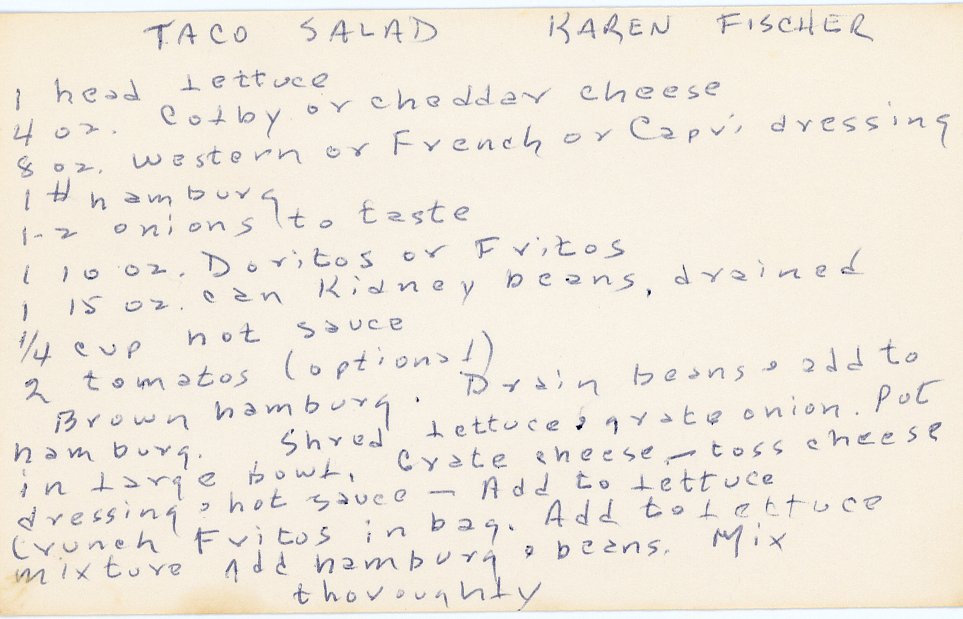 TACO SALAD KAREN FISCHER
1 head lettuce
4 oz. Colby or cheddar cheese
8 oz. Western or French or Capri dressing
1 # hamburg
1-2 onions to taste
1 10 oz. Doritos or Fritos
1 15 oz. can Kidney beans, drained
1/4 cup hot sauce
2 tomatos (optional)
Brown hamburg. Drain beans & add to
hamburg. Shred lettuce & grate onion. Put
in large bowl. Grate cheese - toss cheese
dressing & hot sauce - Add to lettuce
Crunch Fritos in bag. Add to lettuce
mixture Add hamburg & beans. Mix
thoroughly